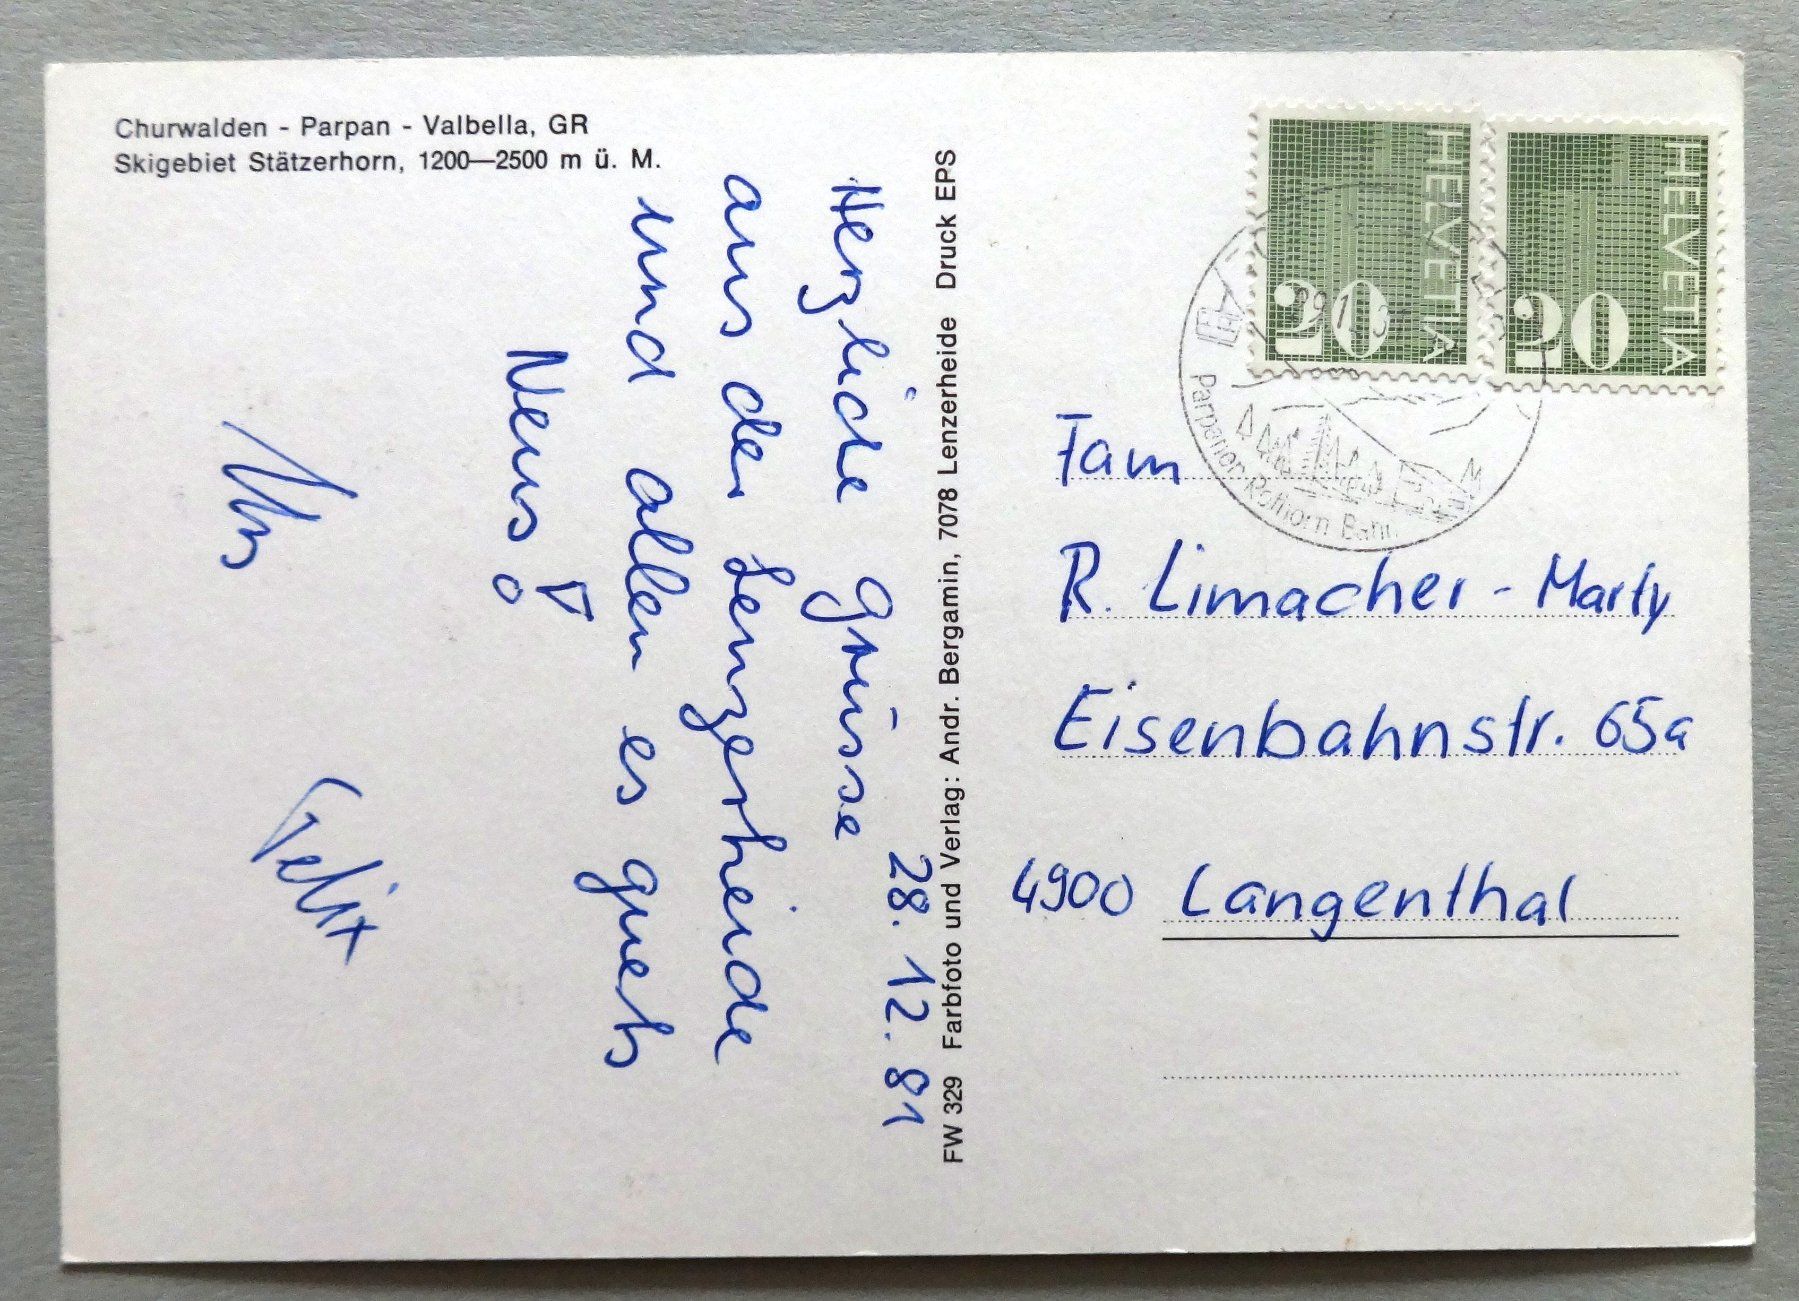 Churwalden - Parpan - Valbella, GR
Skigebiet Stätzerhorn, 1200—2500 m ü. M.
28. 12. 81
Herzliche Grüsse
aus der Lenzerheide
und allen es guets
Neus!
Urs
Felix
FW 329 Farbfoto und Verlag: Andr. Bergamin, 7078 Lenzerheide Druck EPS
HELVETIA
20
HELVETIA
20
Parpaner-Rothorn Bahn
Fam
R. Limacher - Marty
Eisenbahnstr. 65a
4900 Langenthal